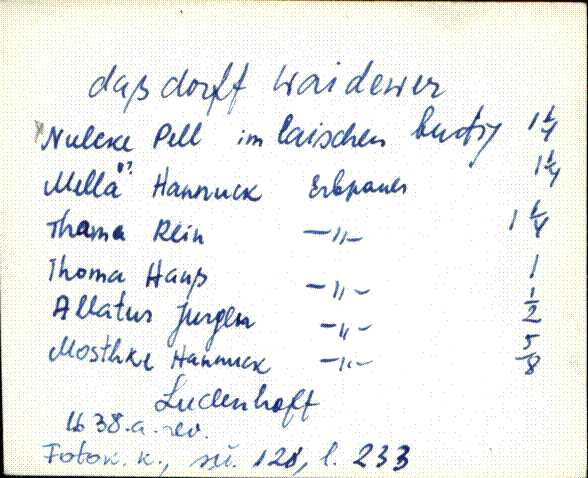 daβ dorff Waidewer
Nulcke Pell im laischen 1 1/4
Mella"? Hannuck Erbpauer 1 1/4
Thama Rein —"— 1 1/4
Thoma Hanβ —"— 1
Allatus Jurgen —"— 1/2
Mosthke Hannuck —"— 5/8
Ludenhoff
1638.a. rev.
Fotok. k., sü. 128, l. 233